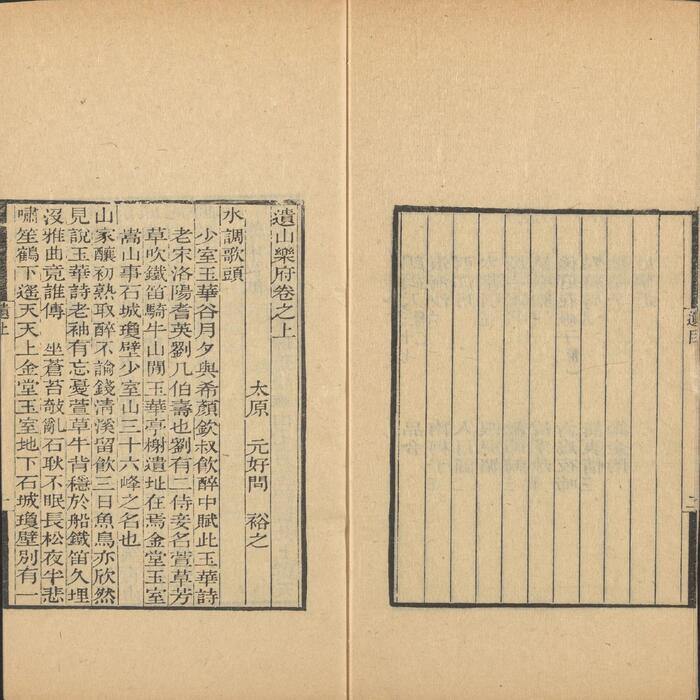 遺目
二
遺山樂府卷之上
太原　元好問　裕之
水調歌頭
少室玉華谷月夕與希顏欽叔飲醉中賦此玉華詩
老宋洛陽耆英劉几伯壽也劉有二侍妾名萱草芳
草吹鐵笛騎牛山閒玉華亭榭遺址在焉金堂玉室
嵩山事石城瓊壁少室山三十六峰之名也
山家釀初熟取醉不論錢清溪留飲三日魚鳥亦欣然
見說玉華詩老袖有忘憂萱草牛背穩於船鐵笛久埋
沒雅曲竟誰傳　坐蒼苔敧亂石耿不眠長松夜半悲
嘯笙鶴下遙天天上金堂玉室地下石城瓊壁別有一
遺上
一